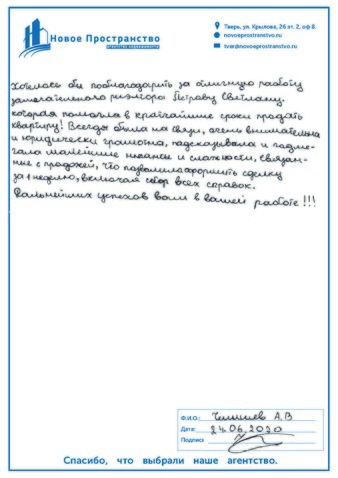 Новое Пространство
агентство недвижимости
Тверь, ул. Крылова, 26 эт. 2, оф 8.
novoeprostranstvo.ru
tver@novoeprostranstvo.ru
Хотелось бы поблагодарить за отличную работу
замечательного риэлтора Петрову Светлану.
которая помогла в кратчайшие сроки продать
квартиру! Всегда была на связи, очень внимательна
и юридически грамотна, подсказывала и подме-
чала малейшие нюансы и сложности, связан-
ные с продажей, что позволило оформить сделку
за 1 неделю, включая сбор всех справок.
Дальнейших успехов вам в вашей работе!!!
Ф.И.О.: А.В
Дата: 24.06.2020
Подпись
Спасибо, что выбрали наше агентство.